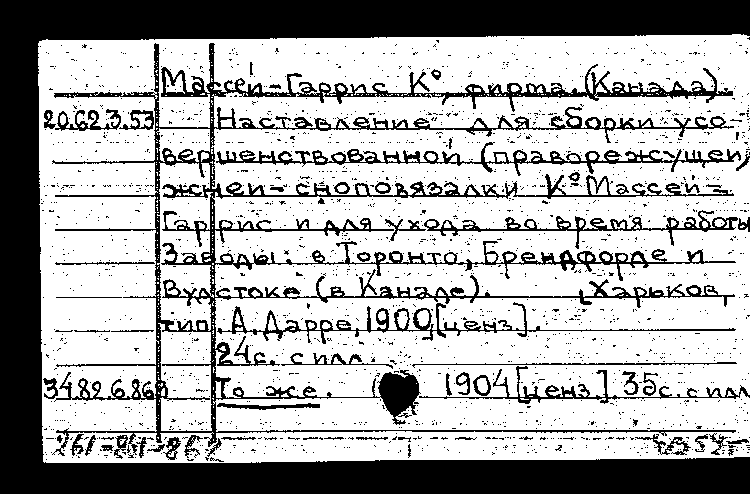 Массей-Гаррис К°, фирма. (Канада).
20.62.3.53 Наставление для сборки усо-
вершенствованной (праворежущей)
жнеи-сноповязалки К° Массей-
Гаррис и для ухода во время работы
Заводы: в Торонто, Брендфорде и
Вудстоке (в Канаде). Харьков,
тип. А. Дарре, 1900 [ценз].
24с. с илл.
34.82.6.868 - То же. 1904 [ценз]. 35с. с илл
261-861-862